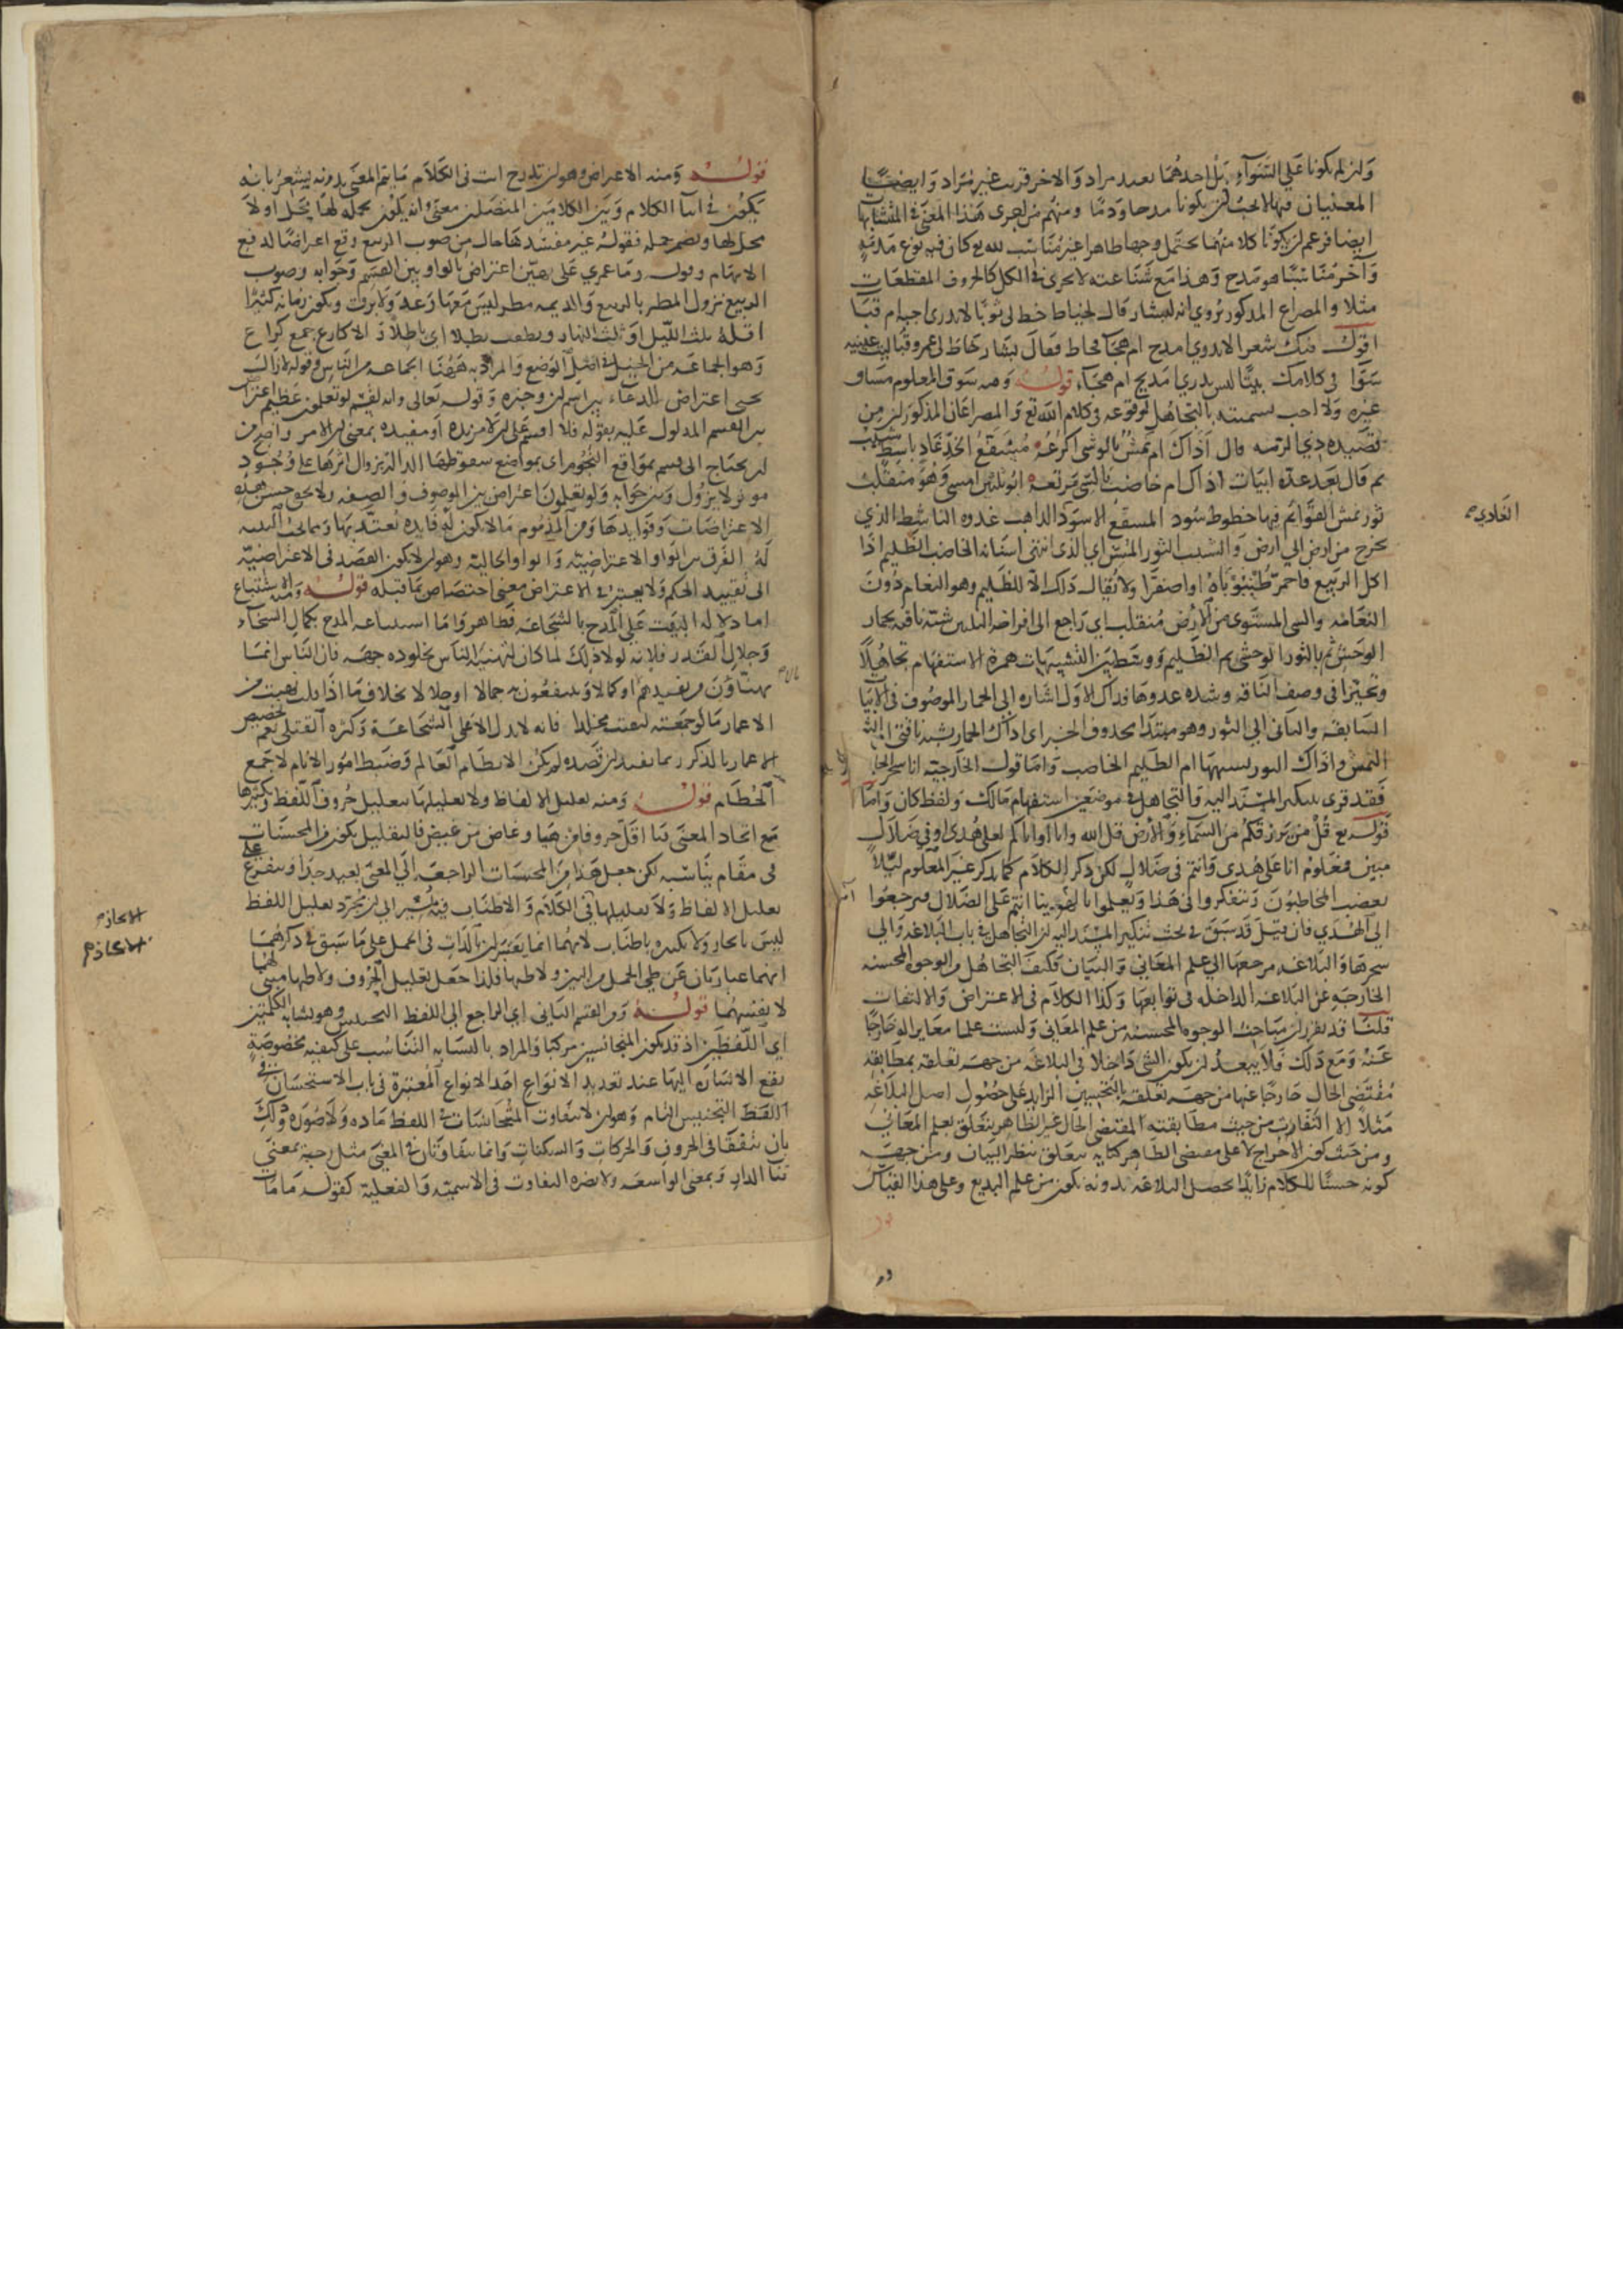 وان لم يكونا على السواء بل احدهما بعيد مراد والاخر قريب غير مراد وايضا
المعنيان فيها لا يجب ان يكونا مدحا وذما ومنهم من اجرى هذا المعنى في المتشابها
ايضا فزعم ان يكونا كلا منهما يحتمل وجها ظاهرا غير مناسب لله تع كان فيه نوع مذمة
واخر مناسبا هو مدح وهذا مع شناعته لا يجرى في الكل كالحروف المقطعات
مثلا والمصراع المذكور يروي انه لبشار قال لخياط خط لي ثوبا لا يدرى اجبة ام قبا
اقول فيك شعرا لا يدري امدح ام هجا فخاط فقال بشار خاط لي عمرو قبا ليت عينيه
سوا في كلامك بيتا ليس يدري امديح ام هجاء قوله ومنه سوق المعلوم مساق
غيره ولا احب تسميته بالتجاهل لوقوعه في كلام الله تع والمصراعان المذكوران من
قصيدة ذي الرمة قال اذاك ام نمش بالوشى اكرعه مسفع الخد غاد ناشط شبب
ثم قال بعد عدة ابيات اذاك ام خاضب بالسي مرتعه ابو ثلثين امسى وهو منقلب
ثور نمش القوائم فيها خطوط سود المسفع الاسود الذاهب غدوه الناشط الذي
يخرج من ارض الى ارض والشبب الثور المسن اي الذى انتهى اسنانه الخاضب الظليم اذا
اكل الربيع فاحمر ظنبوباه او اصفرا ولا يقال ذلك الا للظليم وهو النعام دون
النعامة والسي المستوى من الارض منقلب اي راجع الى افراخه الثلثين شبه ناقته بحمار
الوحش ثم بالثور الوحشى ثم الظليم ووسط بين التشبيهات همزة الاستفهام تجاهلا
وتحيرا في وصف الناقه وشدة عدوها وذاك الاول اشاره الى الحمار الموصوف في الابيا
السابقة والثاني الى الثور وهو مبتدا محذوف الخبر اى اذاك الحمار يشبه ناقتى ام الثو
النمش واذاك الثور يشبهها ام الظليم الخاضب واما قول الخارجية
فقد قرى بتنكير المسند اليه والتجاهل في موضعين استفهام مالك ولفظ كان واما
قوله تع قل من يرزقكم من السماء والارض قل الله وانا او اياكم لعلى هدى او في ضلال
مبين فمعلوم انا على هدى وانتم في ضلال لكن ذكر الكلام كما يذكر غير المعلوم ليلا
يغضب المخاطبون ويتفكروا في هذا ويعلموا بالهوينا انهم على الضلال فيرجعوا
الى الهدى فان قيل قد سبق في بحث تنكير المسند اليه ان التجاهل في باب البلاغه والى
سحرها والبلاغه مرجعها الى علم المعاني والبيان فكيف التجاهل من الوجوه المحسنه
الخارجة عن البلاغه الداخله في توابعها وكذا الكلام في الاعتراض والالتفات
قلنا قد تقرر ان مباحث الوجوه المحسنه من علم المعاني وليست علما مغايرا له خارجا
عنه ومع ذلك فلا يبعد ان يكون الشى داخلا في البلاغه من جهة تعلقه بمطابقة
مقتضى الحال خارجا عنها من جهة تعلقه بالتحسين الزايد على حصول اصل البلاغه
مثلا الالتفات من حيث مطابقته المقتضى الحال غير الظاهر يتعلق بعلم المعاني
ومن حيث كون الاخراج لا على مقتضى الظاهر كنايه يتعلق بنظر البيان ومن جهة
كونه حسنا للكلام زايدا يحصل البلاغه بدونه يكون من علم البديع وعلى هذا القياس
الغادي
قوله ومنه الاعتراض وهو ان تدرج في الكلام ما يتم المعنى بدونه يشعر بانه
يكون في اثنا الكلام وبين الكلامين المتصلين معنى وانه يكون بجملة لها محل او لا
محل لها ويضم جملة فقوله غير مفسدها حال من صوب الربيع وقع اعتراضا لدفع
الايهام وقوله وما عمري على بهين اعتراض بالواو بين القسم وجوابه وصوب
الربيع نزول المطر بالربيع والديمه مطر ليس معها رعد ولا برق ويكون زمانه كثيرا
اقله ثلث الليل او ثلث النهار الاكارع جمع كراع
وهو الجماعة من الخيل في اصل الوضع والمراد به ههنا الجماعه من الناس وقوله لا زالت
اعتراض للدعاء بين اسم ان وخبره وقوله تعالى وانه لقسم لو تعلمون عظيم اعتراض
بين القسم المدلول عليه بقوله فلا اقسم على ان لا مزيده او مفيده بمعنى ان الامر واضح من
ان يحتاج الى قسم بمواقع النجوم اى بمواضع سقوطها الدال بزوال اثرها على وجود
موثر لا يزول وبين جوابه ولو تعلمون اعتراض بين الموصوف والصفه ولا يخفى حسن هذه
الاعتراضات وفوايدها ومن المذموم ما لا يكون له فايده يعتد بها ومما يجب التنبيه
له الفرق بين الواو الاعتراضية والواو الحالية وهو ان لا يكون القصد في الاعتراضية
الى تقييد الحكم ولا يعتبر في الاعتراض معنى اختصاص بما قبله قوله ومنه الاستتباع
اما دلالة البيت على المدح بالشجاعه فظاهر واما استتباعه المدح بكمال السخاء
وجلال القدر فلانه لولا ذلك لما كان لتهنية الناس بخلوده جهة فان الناس انما
يهنئون من يفيدهم او كمالا وينتفعون به جمالا او جلالا بخلاف ما اذا قيل نهبت من
الاعمار ما لو جمعته لبقيت مخلدا فانه لا يدل الا على الشجاعة وكثره القتلى نعم تخصيص
الاعمار بالذكر ربما يفيد ان قصده لم يكن الا نظام العالم وضبط امور الانام لا جمع
الحطام قوله ومنه تعليل الالفاظ ولا تعليلها تقليل حروف اللفظ وتكثيرها
مع اتحاد المعنى اقل حروفا من هيا وغاض من غيض فالتقليل يكون من المحسنات
في مقام يناسبه لكن جعل هذا من المحسنات الراجعه الى المعنى بعيد جدا ويتفرع على
تقليل الالفاظ ولا تقليلها في الكلام والاطناب فيه يشير الى ان مجرد تقليل اللفظ
ليس بايجاز ولا تكثيره باطناب لانهما انما يعتبران بالذات في الجمل على ما سبق في ذكرهما
انهما عبارتان عن طي الجمل من البين ولا طيها فلذا جعل تقليل الحروف ولا طيها مبنى لهما
لا نفسهما قوله ومن القسم الثاني اي الراجع الى اللفظ التجنيس وهو تشابه الكلمتين
اي اللفظين اذ قد يكون المتجانسين مركبا والمراد بالتشابه التناسب على كيفية مخصوصة
يقع الاتيان اليها عند تعديد الانواع احد الانواع المعتبرة في باب الاستحسان في
اللفظ التجنيس التام وهو ان لا يتفاوت المتجانسان في اللفظ ماده ولا صورة وذلك
بان يتفقا في الحروف والحركات والسكنات وانما يتفاوتان في المعنى مثل رحبة بمعنى
فنا الدار وبمعنى الواسعه ولا يضره التفاوت في الاسمية والفعلية كقوله ما مات